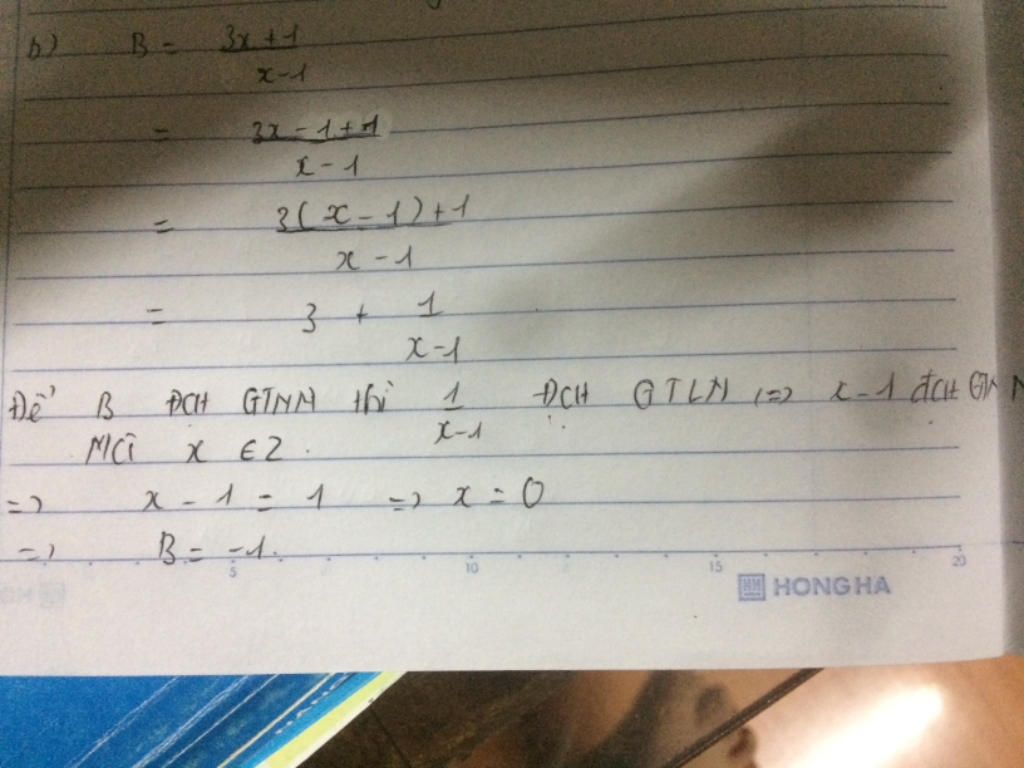 b) B = 3x+1
x-1
= 3x-1+1
x-1
= 3(x-1)+1
x-1
= 3 + 1
x-1
Để B ĐCH GTNN thì 1 ĐCH GTLN (=) x-1 đCH GTNN
x-1
MCĩ x ∈ Z.
=) x - 1 = 1 =) x = 0
=) B = -1.
5 10 15 20
HONG HA